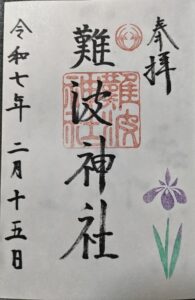 奉拝
難波神社
難波神社
令和七年 二月十五日